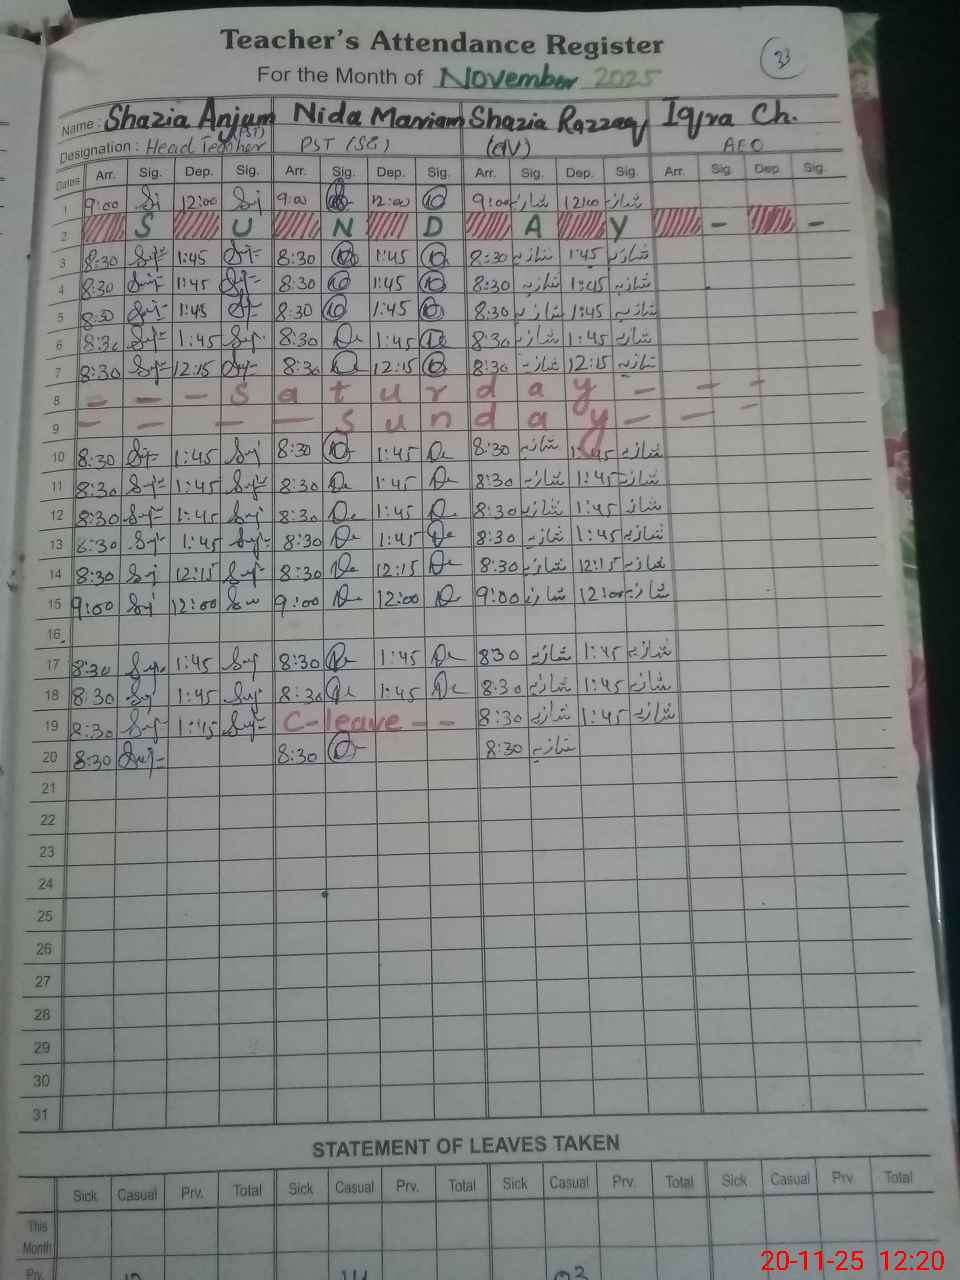 Teacher's Attendance Register
33
For the Month of November 2025
Name : Shazia Anjum (PST) Nida Mariam Shazia Razzaq Iqra Ch.
Designation : Head Teacher PST (SG) AEO
Dates Arr. Sig. Dep. Sig. Arr. Sig. Dep. Sig. Arr. Sig. Dep. Sig. Arr. Sig. Dep. Sig.
1 9:00 12:00 9:00 12:00 9:00 شازیہ 12:00 شازیہ
2 S U N D A Y - -
3 8:30 1:45 8:30 1:45 8:30 شازیہ 1:45 شازیہ
4 8:30 1:45 8:30 1:45 8:30 شازیہ 1:45 شازیہ
5 8:30 1:45 8:30 1:45 8:30 شازیہ 1:45 شازیہ
6 8:30 1:45 8:30 1:45 8:30 شازیہ 1:45 شازیہ
7 8:30 12:15 8:30 12:15 8:30 شازیہ 12:15 شازیہ
8 - - - S a t u r d a y - - -
9 - - - - S u n d a y - - -
10 8:30 1:45 8:30 1:45 8:30 شازیہ 1:45 شازیہ
11 8:30 1:45 8:30 1:45 8:30 شازیہ 1:45 شازیہ
12 8:30 1:45 8:30 1:45 8:30 شازیہ 1:45 شازیہ
13 8:30 1:45 8:30 1:45 8:30 شازیہ 1:45 شازیہ
14 8:30 12:15 8:30 12:15 8:30 شازیہ 12:15 شازیہ
15 9:00 12:00 9:00 12:00 9:00 شازیہ 12:00 شازیہ
16
17 8:30 1:45 8:30 1:45 830 شازیہ 1:45 شازیہ
18 8:30 1:45 8:30 1:45 8:30 شازیہ 1:45 شازیہ
19 8:30 1:45 C-leave - - 8:30 شازیہ 1:45 شازیہ
20 8:30 8:30 8:30 شازیہ
21
22
23
24
25
26
27
28
29
30
31
STATEMENT OF LEAVES TAKEN
Sick Casual Prv. Total Sick Casual Prv. Total Sick Casual Prv. Total Sick Casual Prv. Total
This
Month
Prv.
20-11-25 12:20